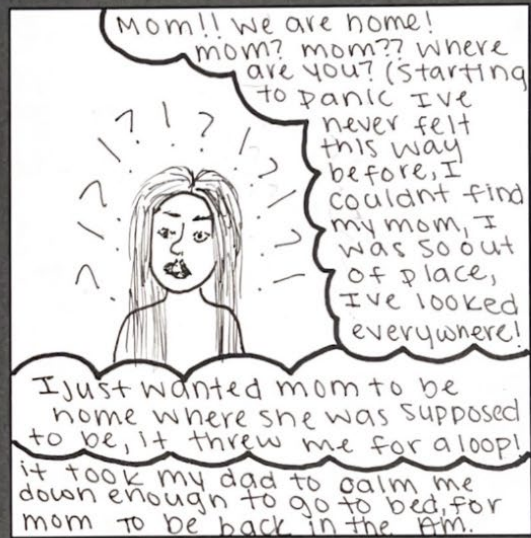 Mom!! We are home!
mom? mom?? Where
are you? (Starting
to panic I've
never felt
this way
before, I
couldnt find
my mom, I
was so out
of place,
I've looked
everywhere!
! ? ! ? ! ? ! ? ! ? !
I just wanted mom to be
home where she was supposed
to be, it threw me for a loop!
it took my dad to calm me
down enough to go to bed, for
mom to be back in the AM.